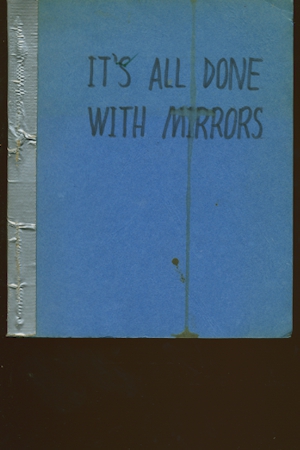 IT'S ALL DONE
WITH MIRRORS